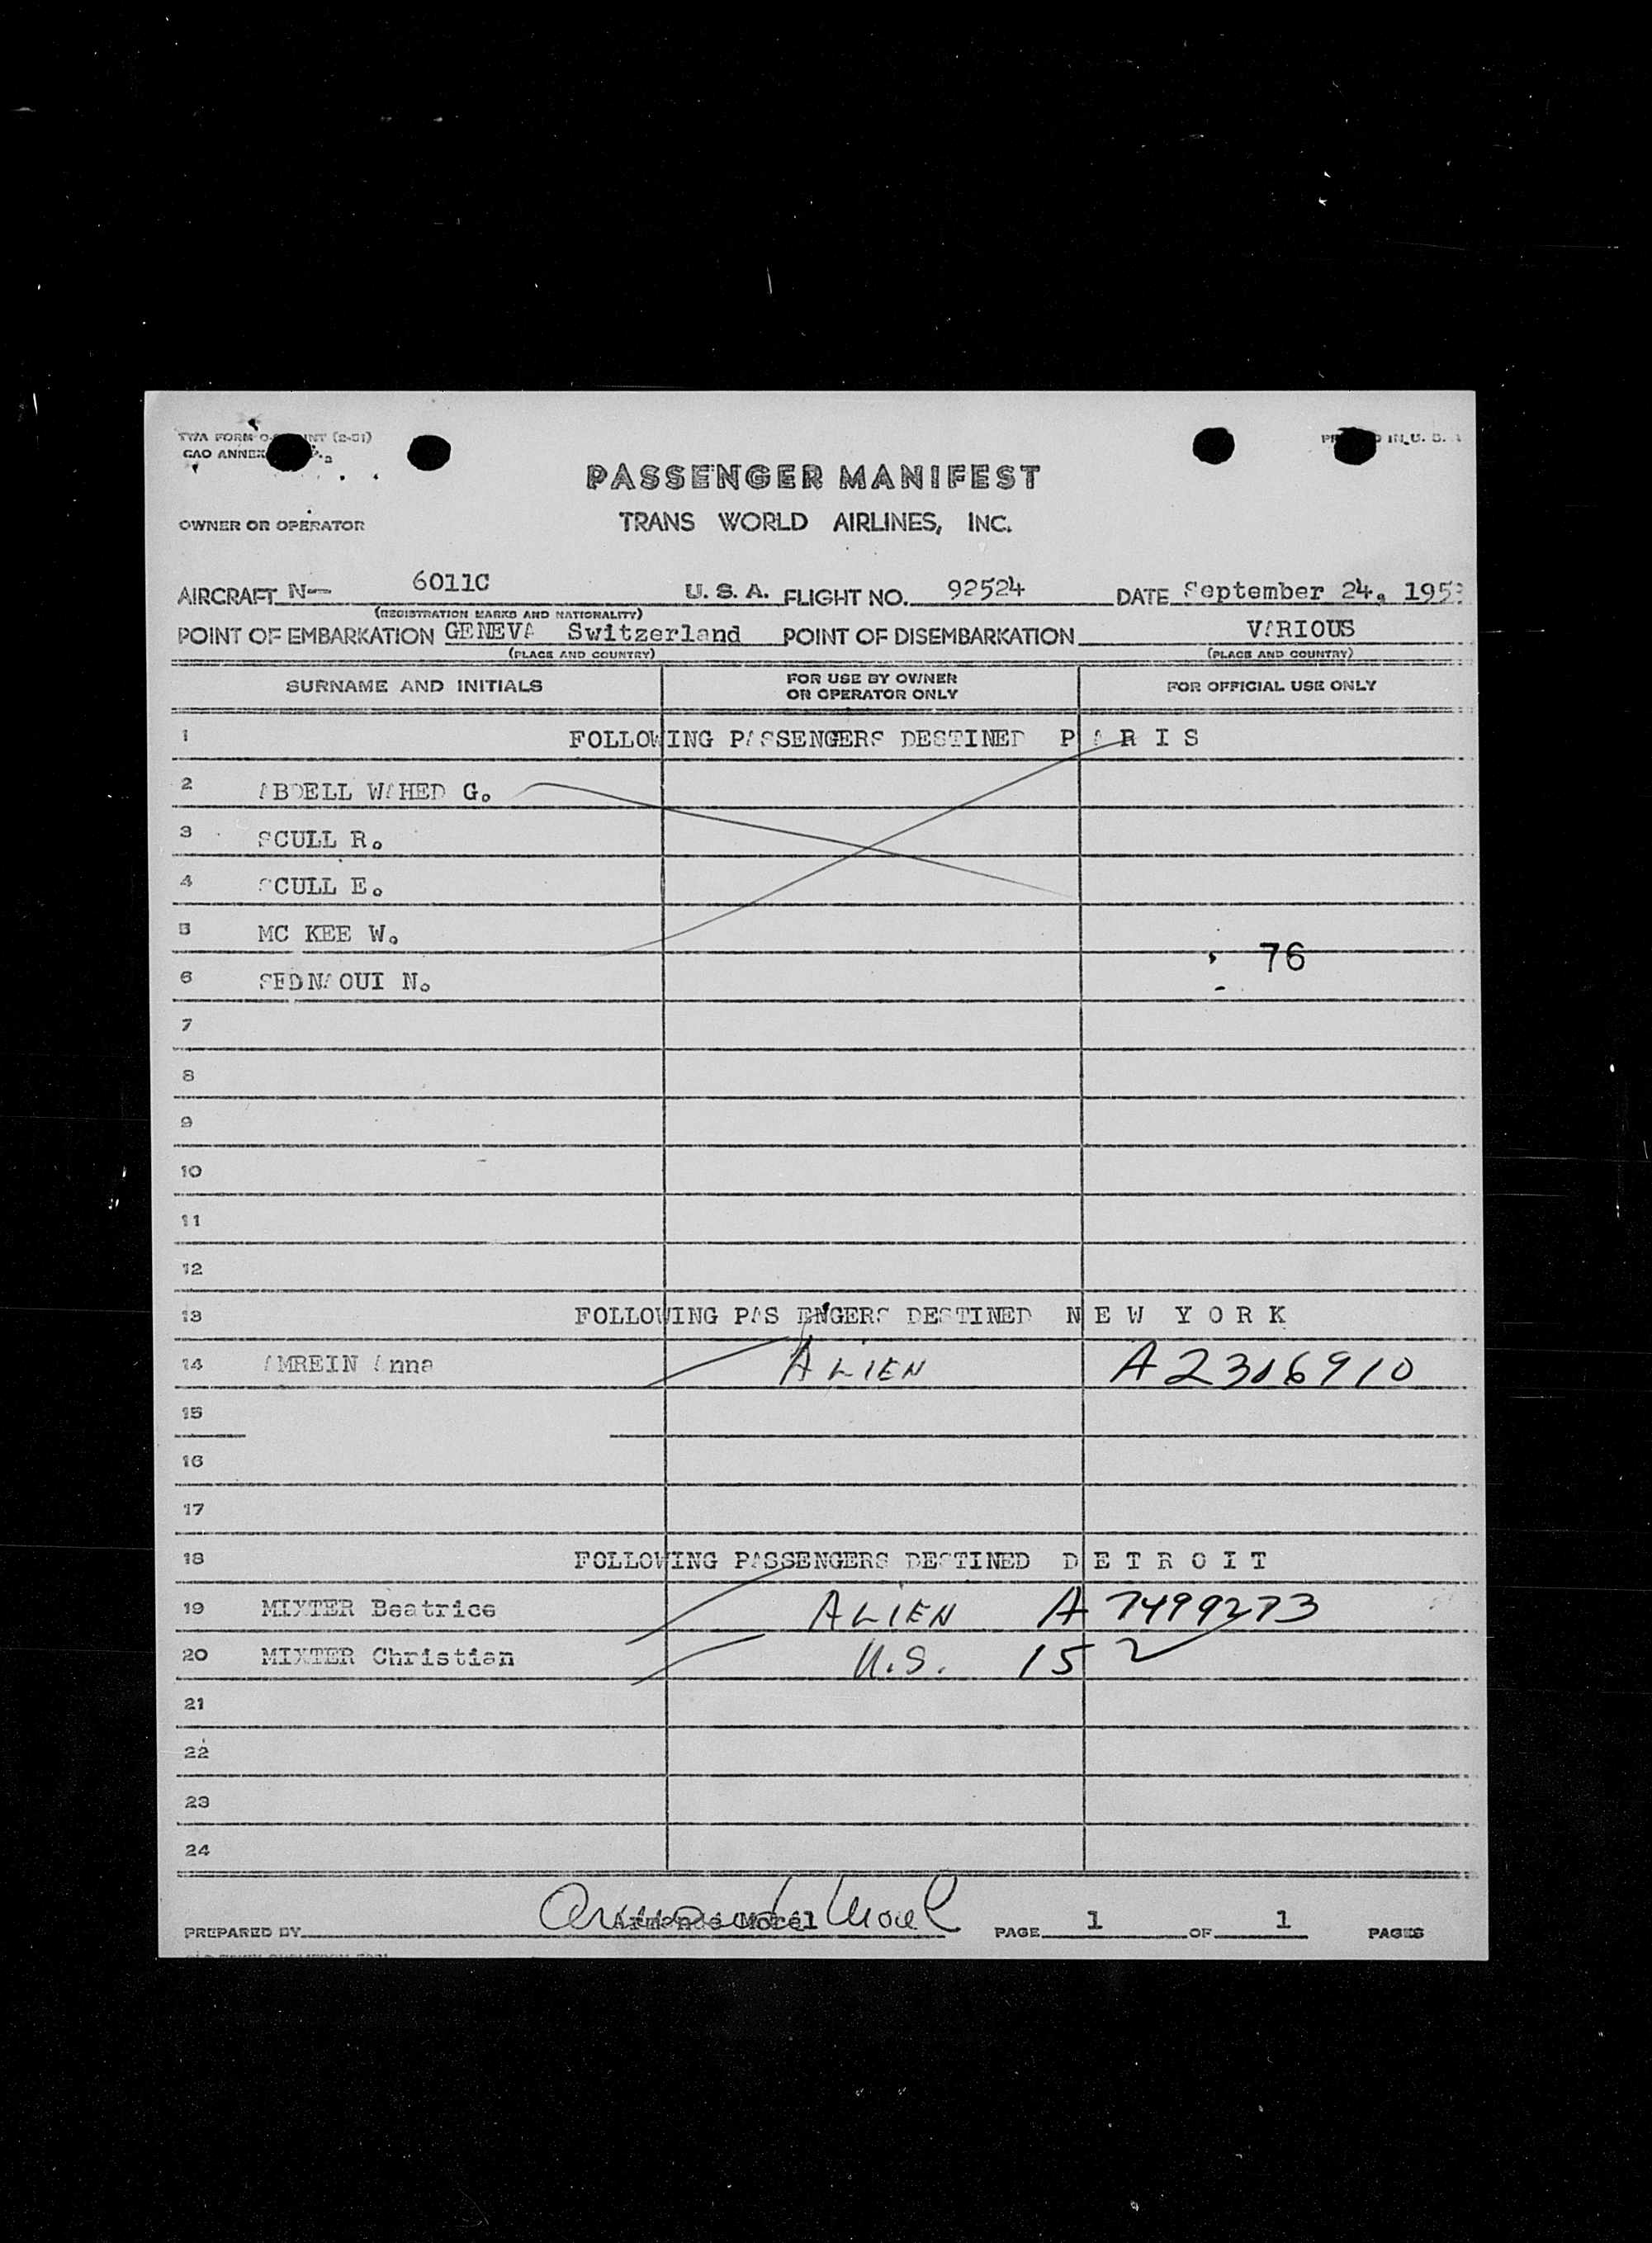 TWA FORM O- INT (2-51)
CAO ANNEX
IN U. S.
PASSENGER MANIFEST
OWNER OR OPERATOR TRANS WORLD AIRLINES, INC.
AIRCRAFT N- 6011C U. S. A. FLIGHT NO. 92524 DATE September 24. 195
(REGISTRATION MARKS AND NATIONALITY)
POINT OF EMBARKATION GENEVA Switzerland POINT OF DISEMBARKATION VARIOUS
(PLACE AND COUNTRY) (PLACE AND COUNTRY)
SURNAME AND INITIALS FOR USE BY OWNER OR OPERATOR ONLY FOR OFFICIAL USE ONLY
1 FOLLOWING PASSENGERS DESTINED P A R I S
2 ABDELL WAHED G.
3 SCULL R.
4 SCULL E.
5 MC KEE W.
76
6 SEDNAOUI N.
7
8
9
10
11
12
13 FOLLOWING PAS ENGERS DESTINED N E W Y O R K
14 AMREIN Anna ALIEN A2316910
15
16
17
18 FOLLOWING PASSENGERS DESTINED D E T R O I T
19 MIXTER Beatrice ALIEN A 7499273
20 MIXTER Christian U.S. 15 2
21
22
23
24
PREPARED BY Armande Morel PAGE 1 OF 1 PAGES